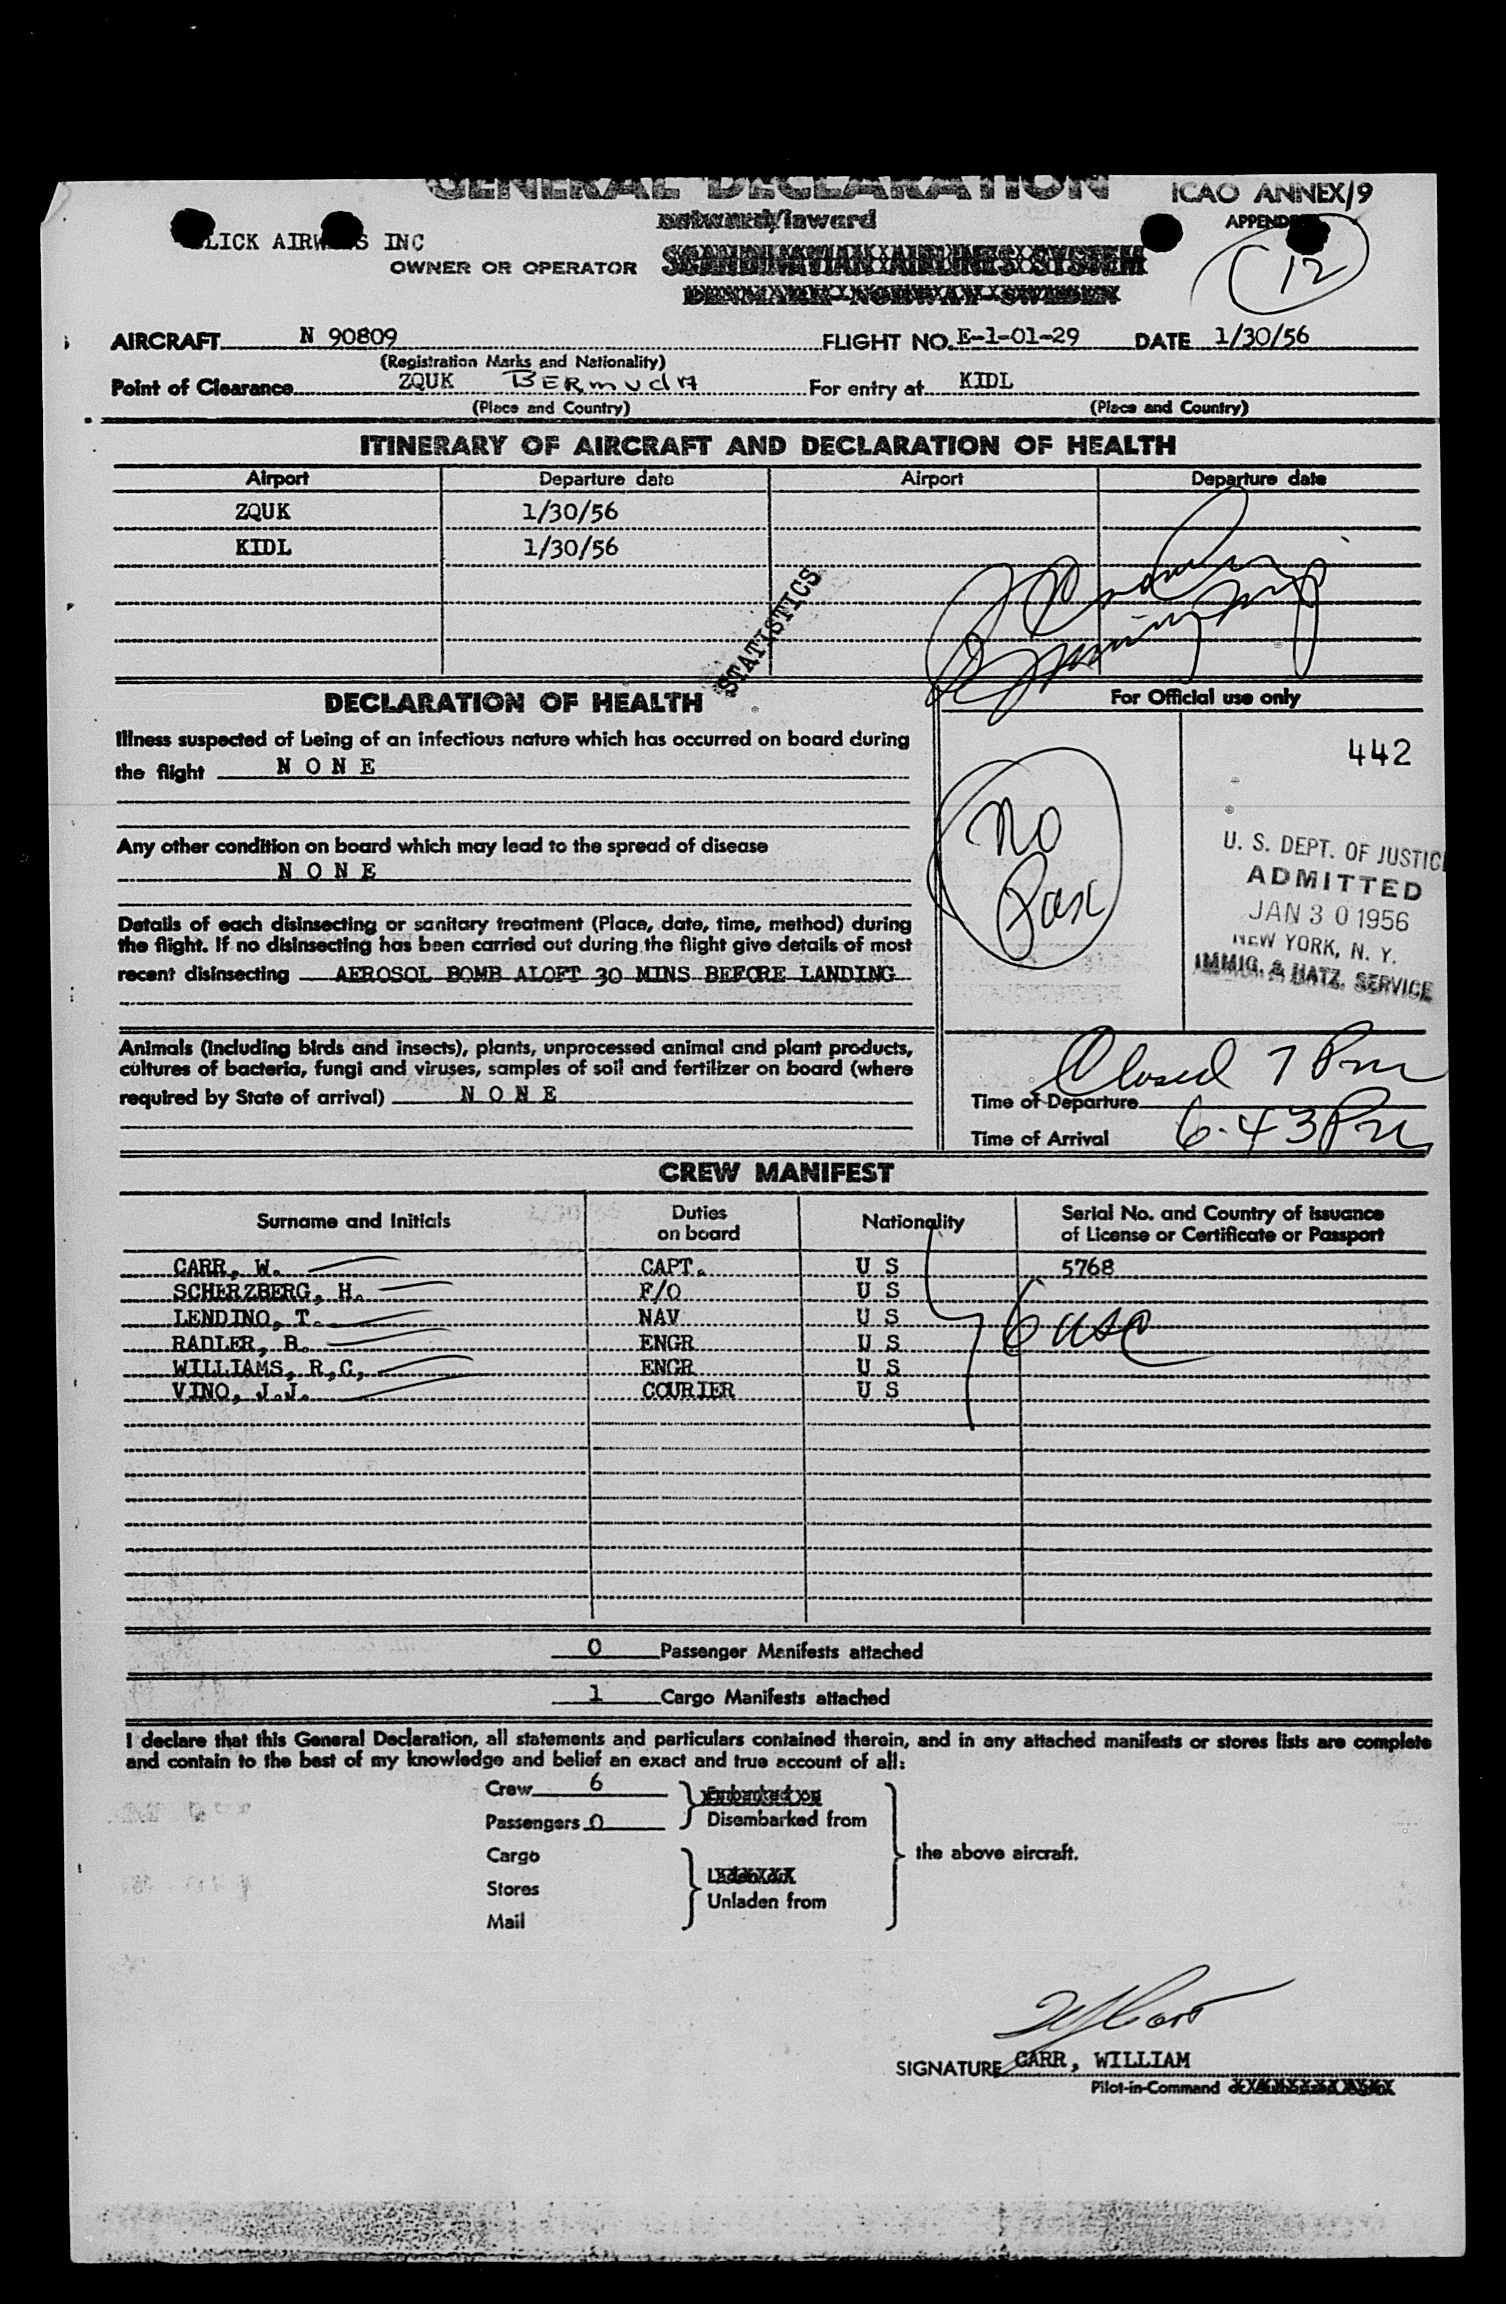 GENERAL DECLARATION
ICAO ANNEX/9
outward/inward
APPEND
LICK AIRW S INC
OWNER OR OPERATOR
SCANDINAVIAN AIRLINES SYSTEM
DENMARK-NORWAY-SWEDEN
12
AIRCRAFT N 90809 FLIGHT NO. E-1-01-29 DATE 1/30/56
(Registration Marks and Nationality)
Point of Clearance ZQUK BERMUDA For entry at KIDL
(Place and Country) (Place and Country)
ITINERARY OF AIRCRAFT AND DECLARATION OF HEALTH
Airport Departure date Airport Departure date
ZQUK 1/30/56
KIDL 1/30/56
STATISTICS
DECLARATION OF HEALTH
For Official use only
Illness suspected of being of an infectious nature which has occurred on board during
the flight N O N E
442
No
Pax
Any other condition on board which may lead to the spread of disease
N O N E
U. S. DEPT. OF JUSTIC
ADMITTED
JAN 30 1956
NEW YORK, N. Y.
IMMIG. & NATZ. SERVICE
Details of each disinsecting or sanitary treatment (Place, date, time, method) during
the flight. If no disinsecting has been carried out during the flight give details of most
recent disinsecting AEROSOL BOMB ALOFT 30 MINS BEFORE LANDING
Animals (including birds and insects), plants, unprocessed animal and plant products,
cultures of bacteria, fungi and viruses, samples of soil and fertilizer on board (where
required by State of arrival) N O N E
Closed 7 Pm
Time of Departure
Time of Arrival 6.43 Pm
CREW MANIFEST
Surname and Initials Duties on board Nationality Serial No. and Country of issuance of License or Certificate or Passport
CARR, W. CAPT. U S 5768
SCHERZBERG, H. F/O U S
LENDINO, T. NAV U S 6 USC
RADLER, B. ENGR U S
WILLIAMS, R,C, ENGR U S
VINO, J.J. COURIER U S
0 Passenger Manifests attached
1 Cargo Manifests attached
I declare that this General Declaration, all statements and particulars contained therein, and in any attached manifests or stores lists are complete
and contain to the best of my knowledge and belief an exact and true account of all:
Crew 6 Embarked on
Passengers 0 Disembarked from
Cargo the above aircraft.
Laden on
Stores
Unladen from
Mail
SIGNATURE CARR, WILLIAM
Pilot-in-Command or Authorized Agent